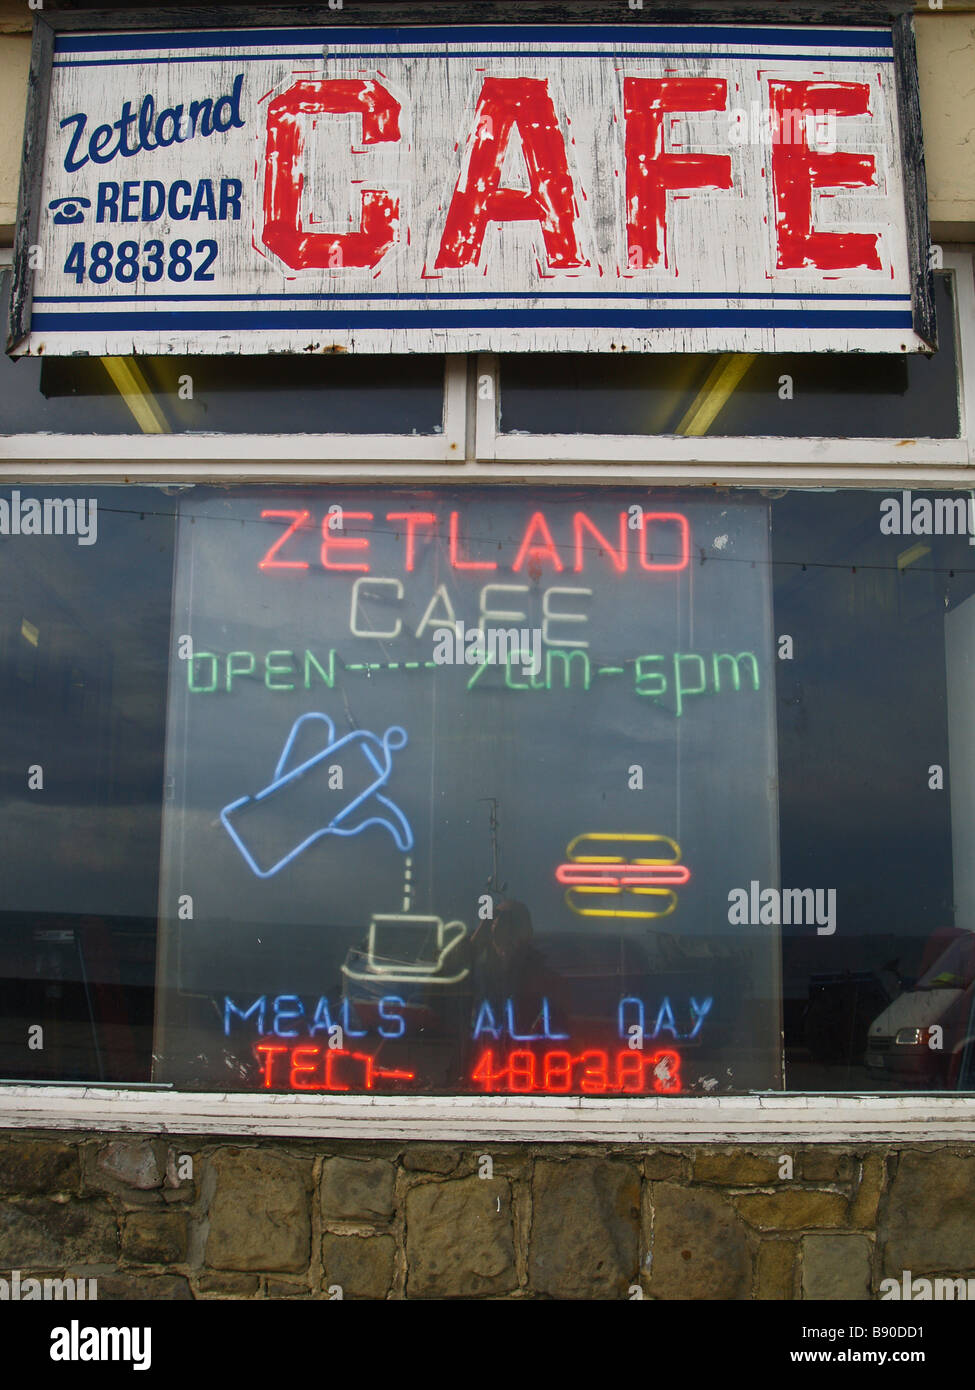 Zetland
REDCAR
488382
CAFE
ZETLAND
CAFE
OPEN----- 7am-5pm
MEALS ALL DAY
TEL- 488383
alamy
Image ID: B90DD1
www.alamy.com